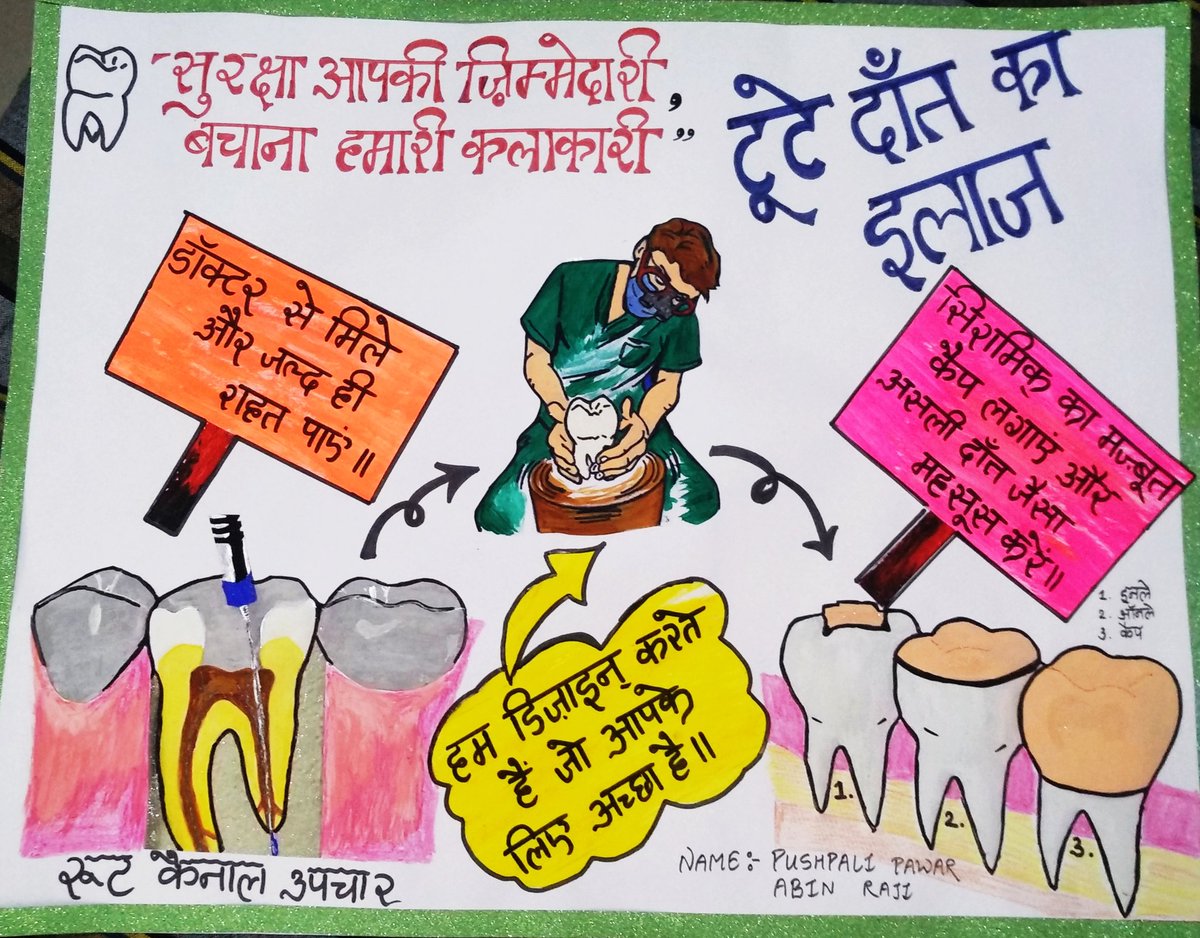 “सुरक्षा आपकी ज़िम्मेदारी,
बचाना हमारी कलाकारी”
टूटे दाँत का
इलाज
डॉक्टर से मिले
और जल्द ही
राहत पाएं॥
सिरामिक् का मज्बूत
कैप लगाएं और
असली दाँत जैसा
महसूस करें॥
1. इनले
2. ऑनले
3. कैप
हम डिज़ाइन् करते
हैं जो आपके
लिए अच्छा है॥
1.
2.
3.
रूट कैनाल उपचार
NAME:- PUSHPALI PAWAR
ABIN RAJI